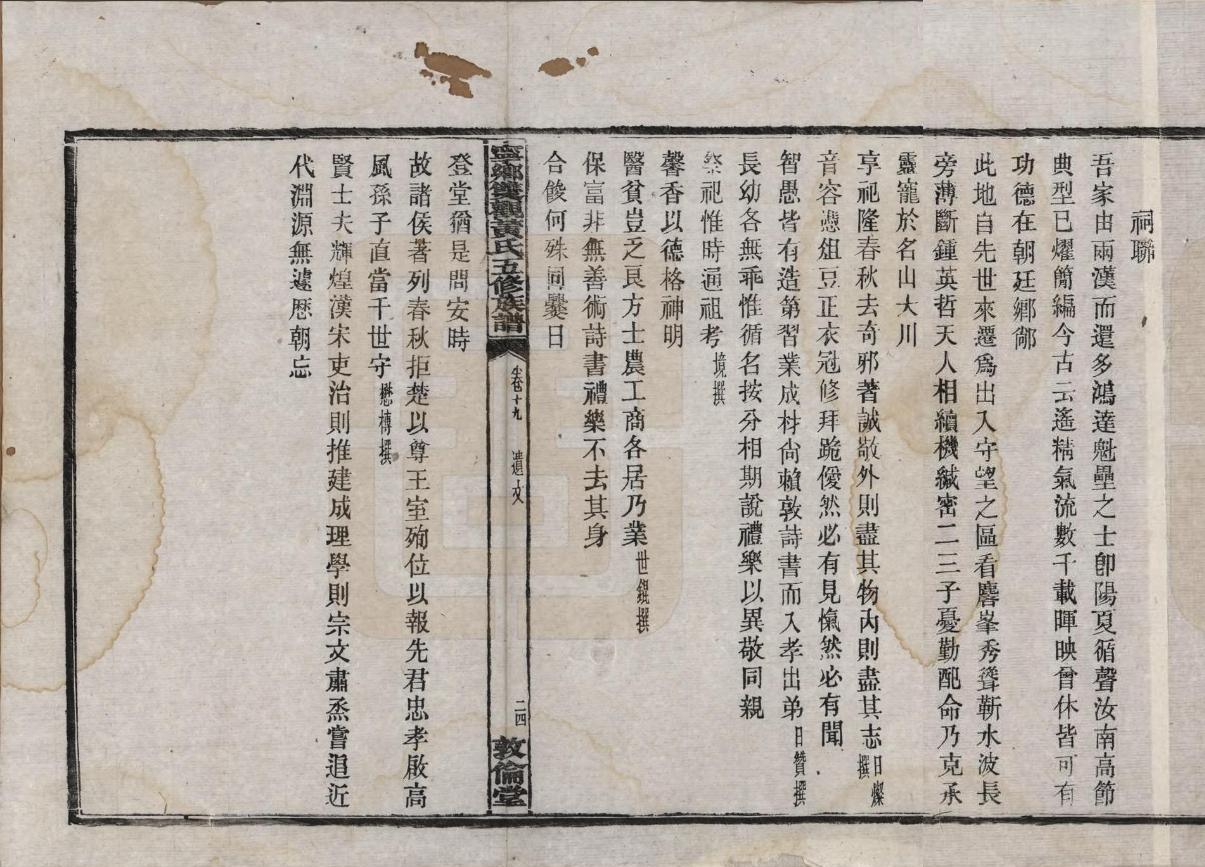 祠聯
吾家由兩漢而還多鴻達魁壘之士卽陽夏循聲汝南高節
典型已燿簡編今古云遙精氣流數千載暉映曾休皆可有
功德在朝廷鄕鄰
此地自先世來遷爲出入守望之區看麐峯秀聳靳水波長
旁薄斷鍾英哲天人相續機緘密二三子憂勤配命乃克承
靈寵於名山大川
享祀隆春秋去奇邪著誠敬外則盡其物內則盡其志日燦撰
音容悲俎豆正衣冠修拜跪僾然必有見愾然必有聞
智愚皆有造第習業成材尙賴敦詩書而入孝出弟日贊撰
長幼各無乖惟循名按分相期說禮樂以異敬同親
祭祀惟時通祖考境撰
馨香以德格神明
醫貧豈乏良方士農工商各居乃業世錕撰
保富非無善術詩書禮樂不去其身
合餕何殊同爨日
寧鄕雙觀黃氏五修族譜
卷十九 遺文 二四 敦倫堂
登堂猶是問安時
故諸侯著列春秋拒楚以尊王室殉位以報先君忠孝啟高
風孫子直當千世守懋榑撰
賢士夫輝煌漢宋吏治則推建成理學則宗文肅烝嘗追近
代淵源無遽歷朝忘